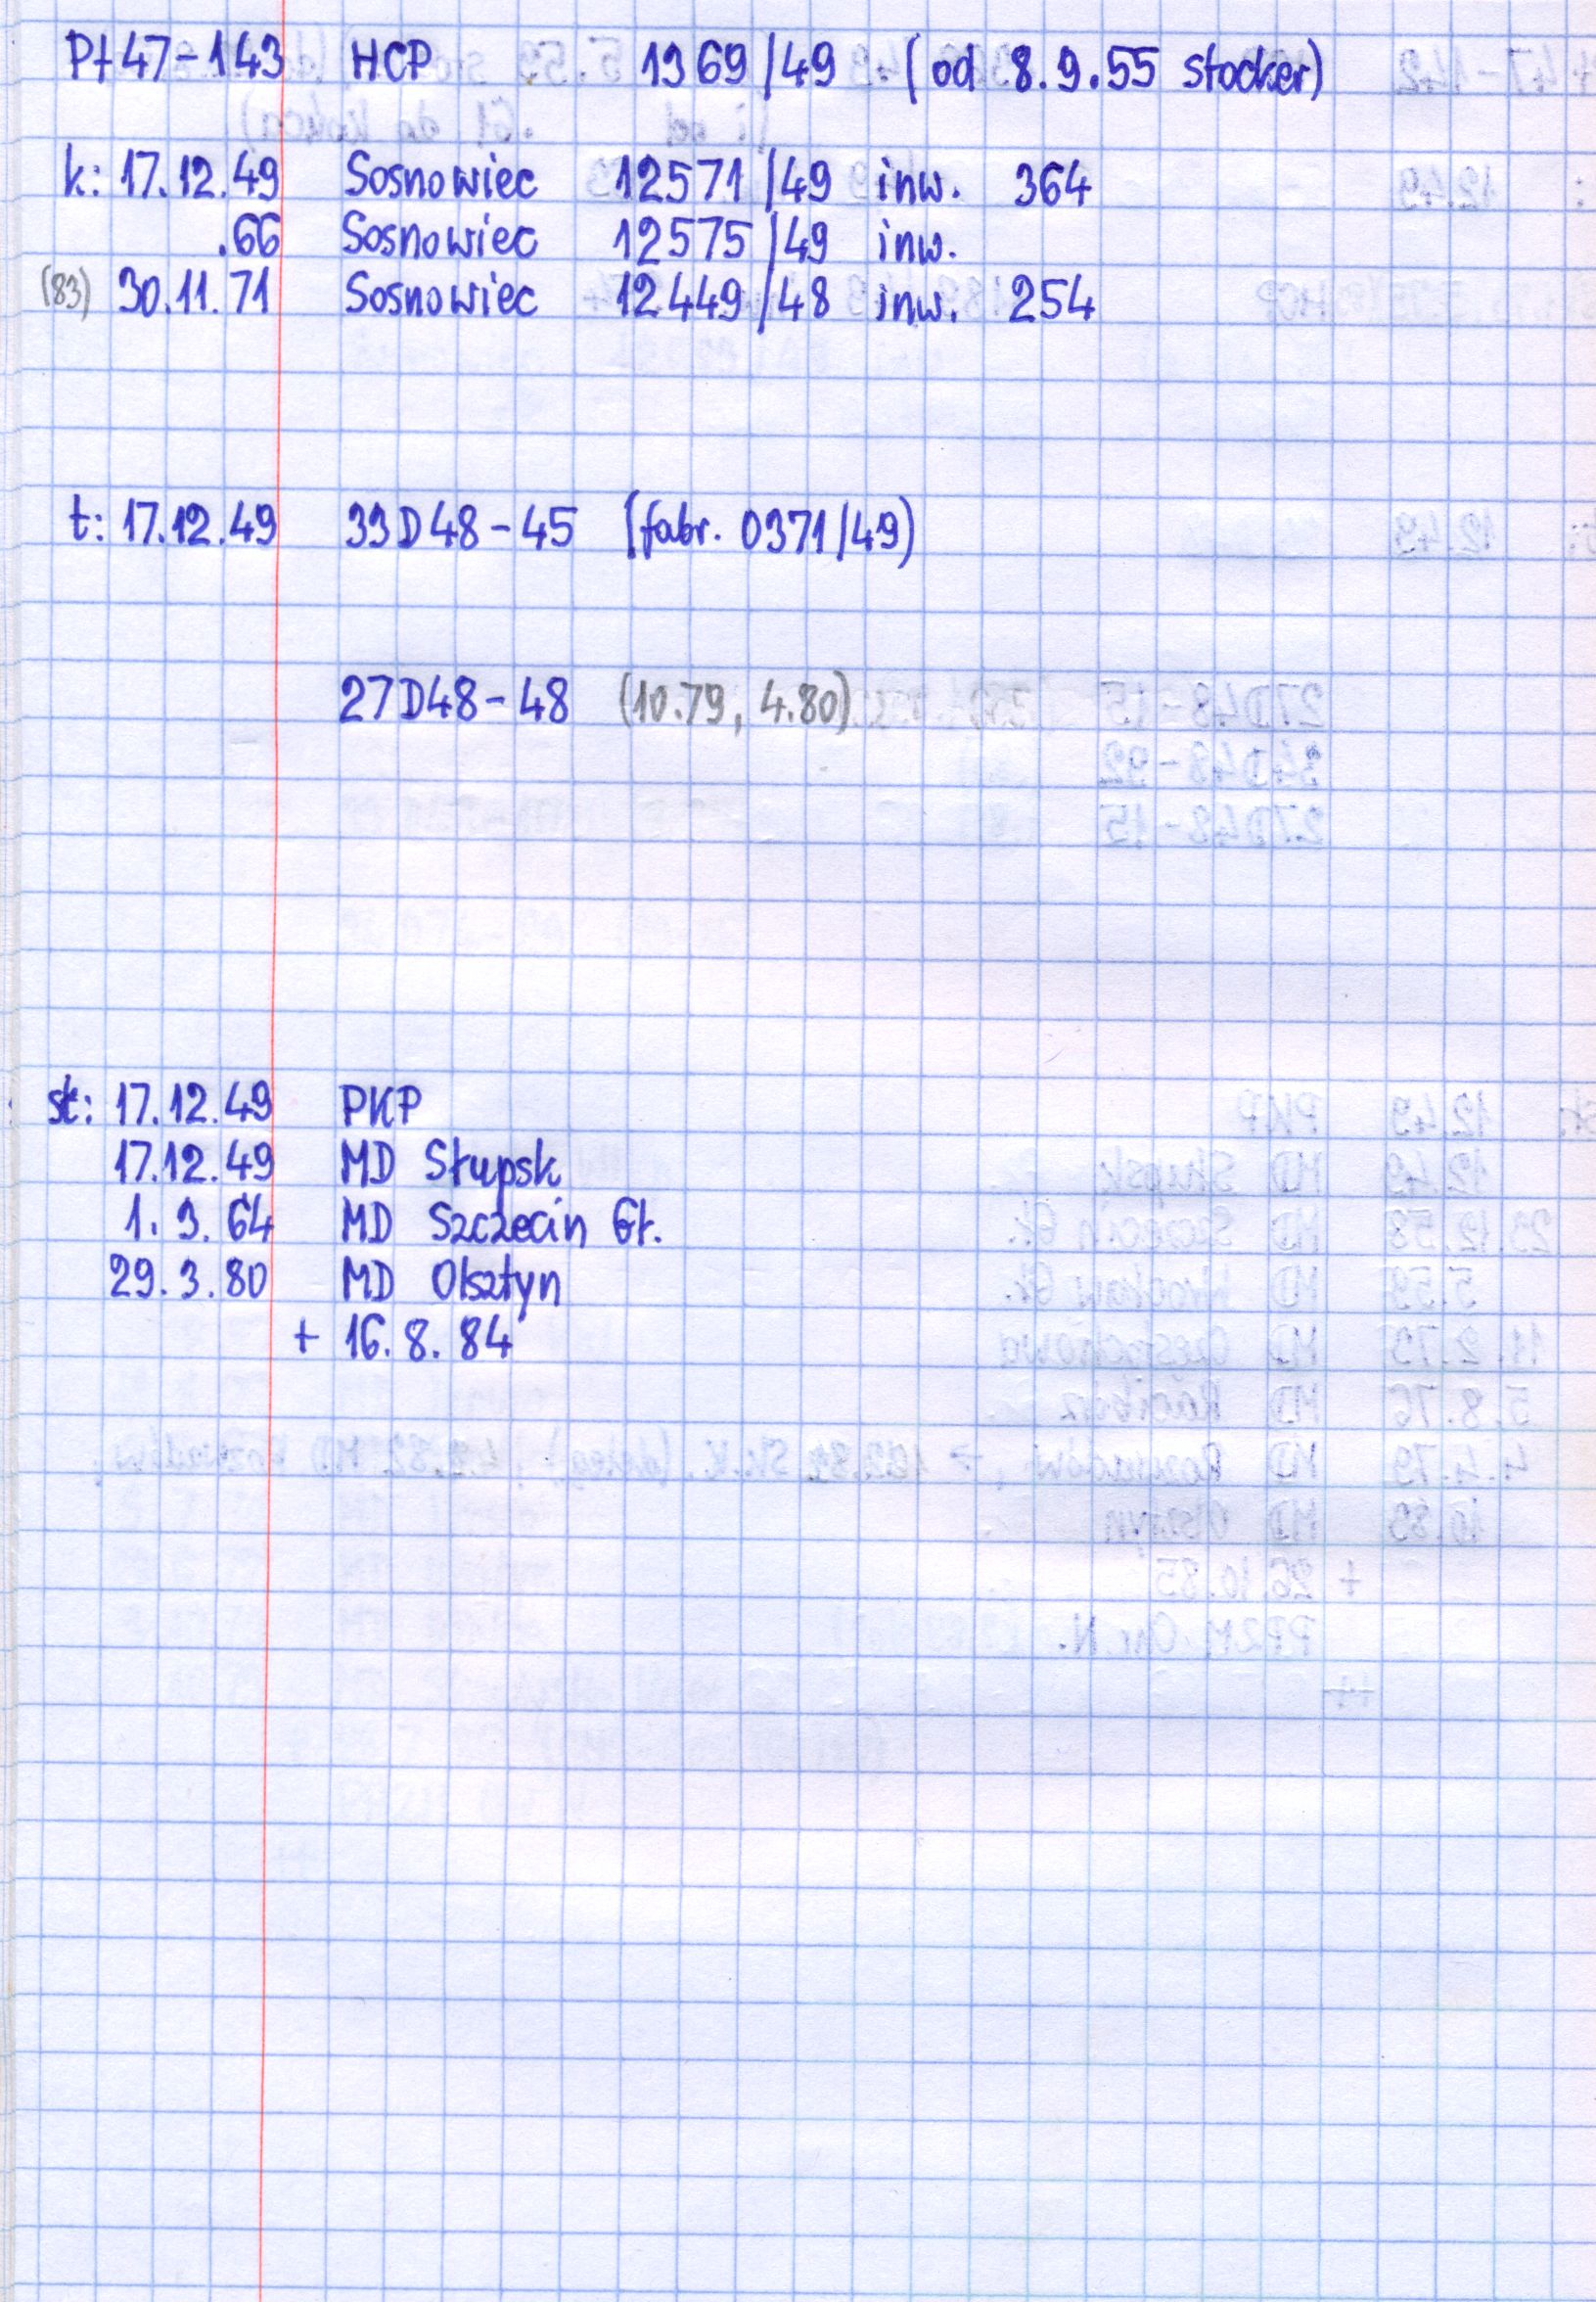 Pt47-143 HCP 1369/49 (od 8.9.55 stocker)
k: 17.12.49 Sosnowiec 12571/49 inw. 364
.66 Sosnowiec 12575/49 inw.
(83) 30.11.71 Sosnowiec 12449/48 inw. 254
t: 17.12.49 33D48-45 (fabr. 0371/49)
27D48-48 (10.79, 4.80)
st: 17.12.49 PKP
17.12.49 MD Słupsk
1.3.64 MD Szczecin Gł.
29.3.80 MD Olsztyn
+ 16.8.84